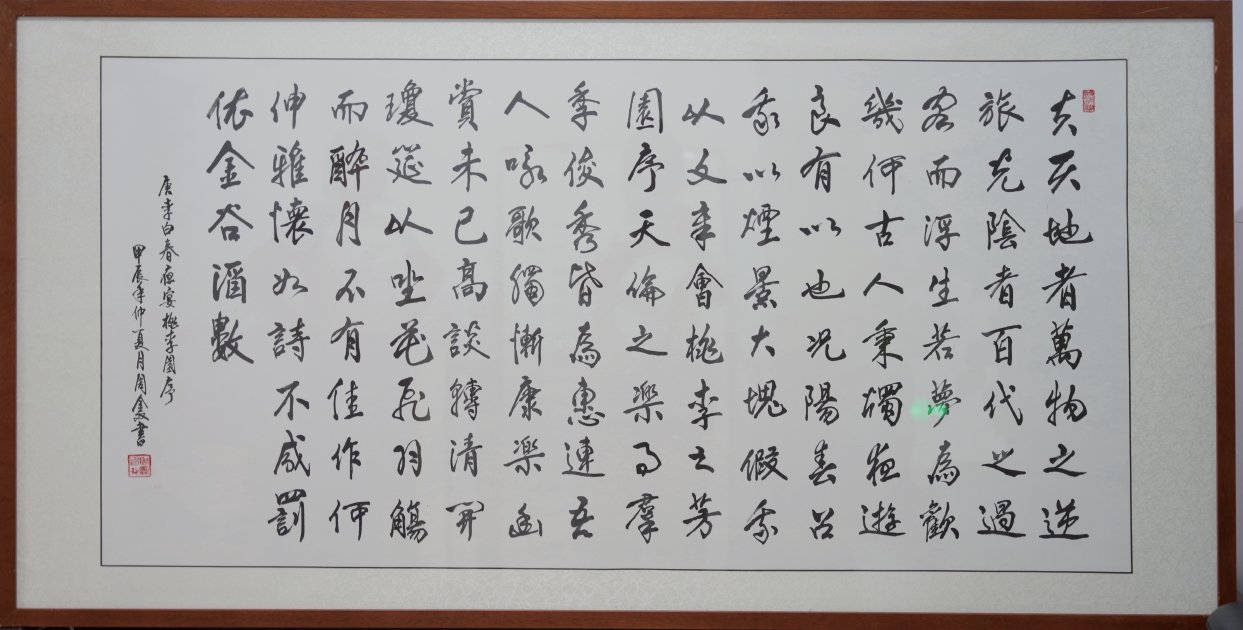 夫天地者萬物之逆
旅光陰者百代之過
客而浮生若夢為歡
幾何古人秉燭夜遊
良有以也況陽春召
我以煙景大塊假我
以文章會桃李之芳
園序天倫之樂事羣
季俊秀皆為惠連吾
人咏歌獨慚康樂幽
賞未已高談轉清開
瓊筵以坐花飛羽觴
而醉月不有佳作何
伸雅懷如詩不成罰
依金谷酒數
唐李白春夜宴桃李園序
甲辰年仲夏月周書